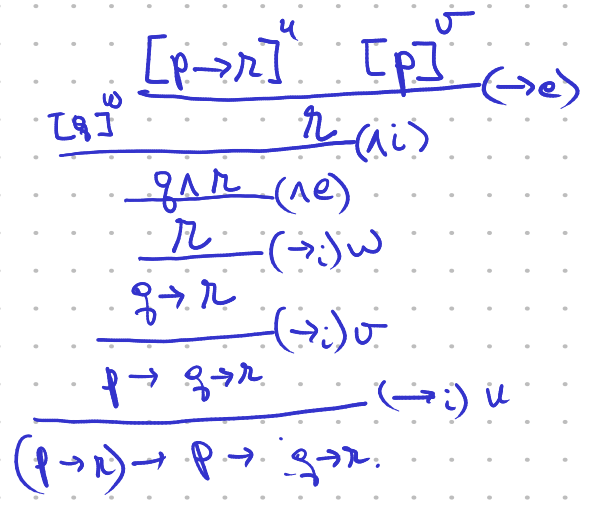 [p→r]ᵘ [p]ᵛ (→e)
[q]ʷ r (∧i)
q∧r (∧e)
r (→i) w
q→r (→i) v
p→ q→r (→i) u
(p→r)→ p→ q→r.